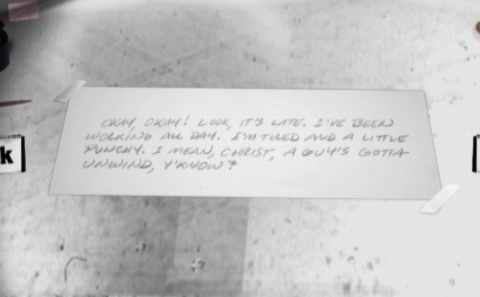 OKAY, OKAY! LOOK, IT'S LATE. I'VE BEEN
WORKING ALL DAY. I'M TIRED AND A LITTLE
PUNCHY. I MEAN, CHRIST, A GUY'S GOTTA
UNWIND, Y'KNOW?
k